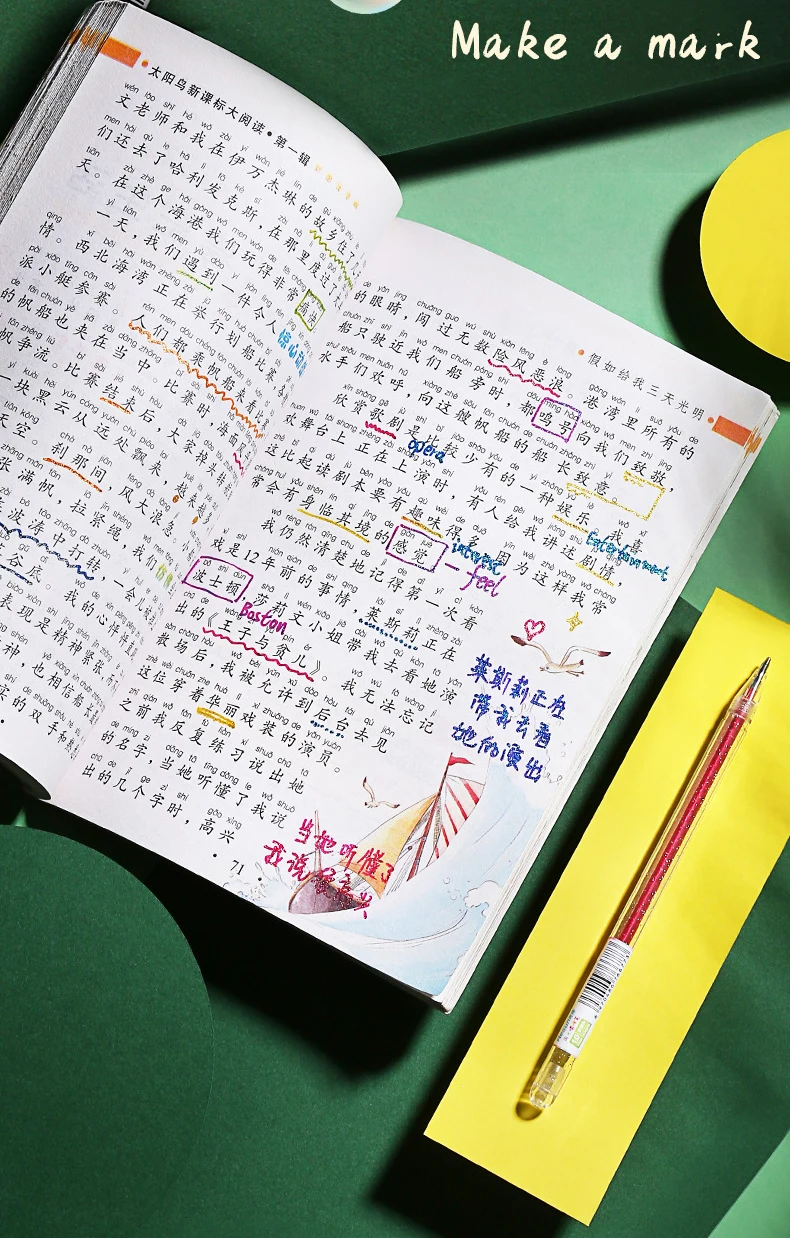 Make a mark
太阳鸟新课标大阅读·第一辑
文老师和我在伊万杰琳的故乡住了
们还去了哈利发克斯,在那里度过了
天。在这个海港我们玩得非常痛快
一天,我们遇到一件令人惊心动
情。西北海湾正在举行划船比赛
派小艇参赛。人们都乘帆船来
的帆船也夹在当中。比赛时,海面
帆争流。比赛结束后,大家掉头
一块黑云从远处飘来,越来越
天空。刹那间,风大浪急。
张满帆,拉紧绳,我们
波涛中打转,一会儿
谷底。我的心怦
表现是精神紧张,而
神,也相信船长
实的双手和
假如给我三天光明
的眼睛,闯过无数险风恶浪。港湾里所有的
船只驶近我们船旁时,都鸣号向我们致敬,
水手们欢呼,向这艘帆船的船长致意。
欣赏歌剧是比较少有的一种娱乐,我喜
欢舞台上正在上演时,有人给我讲述剧情,
这比起读剧本要有趣味得多,因为这样我常
常会有身临其境的感觉
我仍然清楚地记得第一次看
戏是12年前的事情,莱斯莉正在
波士顿,莎莉文小姐带我去看她演
出的《王子与贫儿》。我无法忘记
散场后,我被允许到后台去见
这位穿着华丽戏装的演员。
之前我反复练习说出她
的名字,当她听懂了我说
出的几个字时,高兴
opera
Entertainment
interest
feel
Boston
莱斯莉正在
带我去看
她的演出
当她听懂了
我说
71